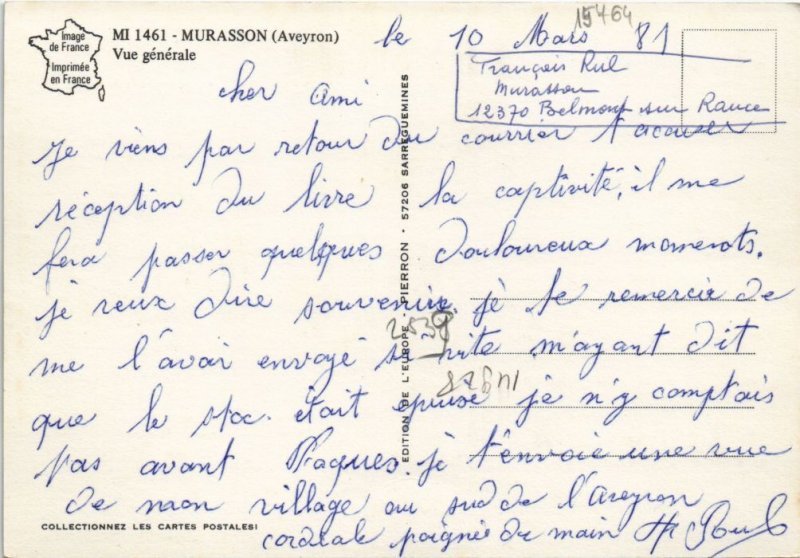 15464
Image
de France
Imprimée
en France
MI 1461 - MURASSON (Aveyron)
Vue générale
le 10 Mars 81
François Rul
Murasson
12370 Belmont sur Rance
cher ami
je viens par retour du courrier t'acuser
réception du livre la captivité, il me
fera passer quelques douloureux moments.
je veux dire souvenir, je te remercie de
me l'avoir envoyé si vite m'ayant dit
que le stoc était épuisé je n'y comptais
pas avant Paques. je t'envoie une vue
de mon village au sud de l'Aveyron
cordiale poignée de main
EDITION DE L'EUROPE - PIERRON - 57206 SARREGUEMINES
COLLECTIONNEZ LES CARTES POSTALES!